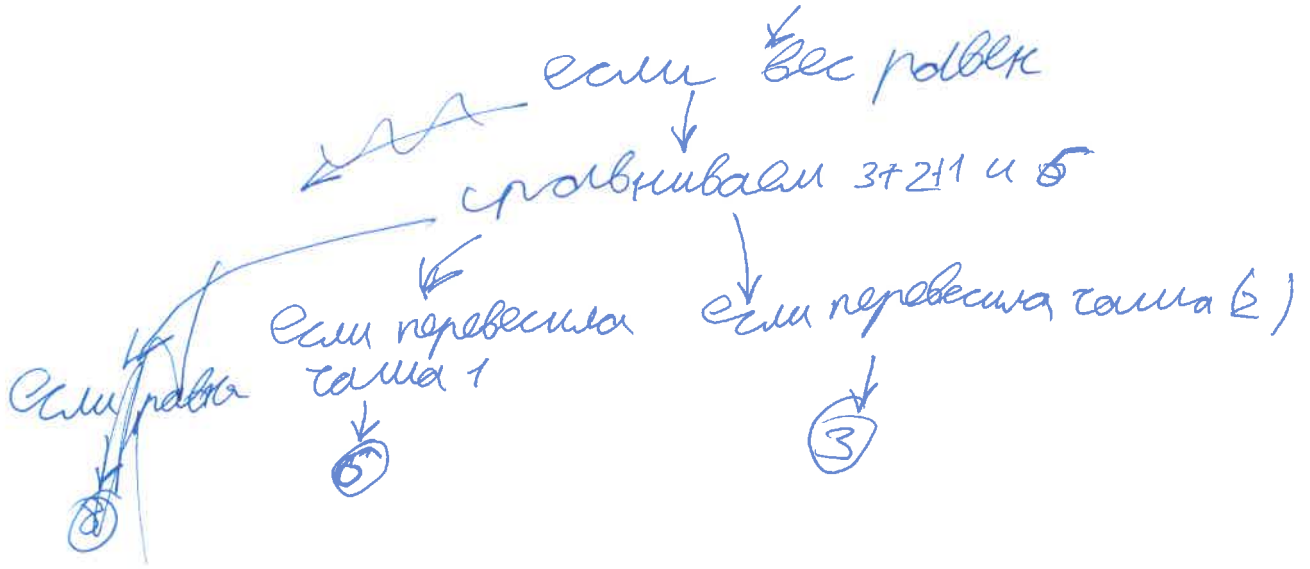 если вес равен
сравниваем 3+2+1 и 5
если перевесила чаша 1
если перевесила чаша (2)
если равны
3